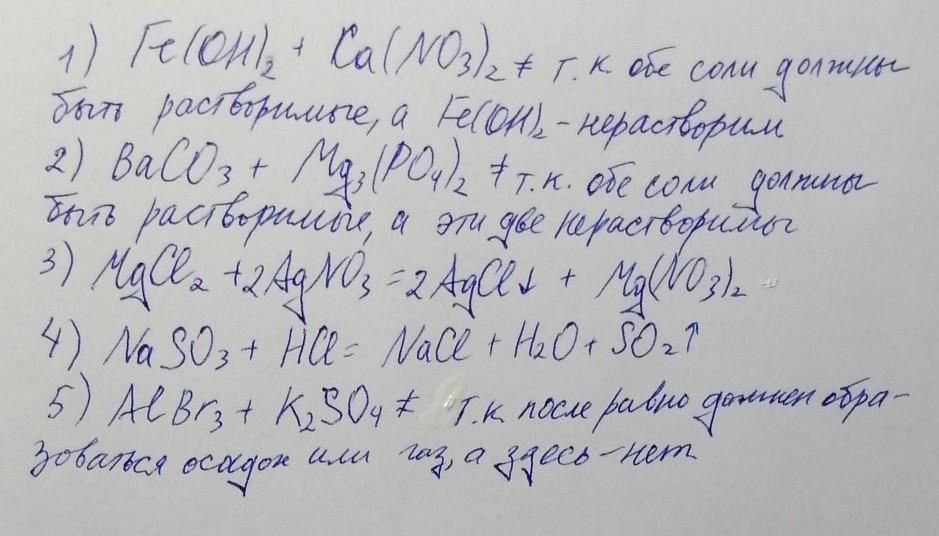 1) Fe(OH)₂ + Ca(NO₃)₂ ≠ т.к. обе соли должны
быть растворимые, а Fe(OH)₂ - нерастворим
2) BaCO₃ + Mg₃(PO₄)₂ ≠ т.к. обе соли должны
быть растворимые, а эти две нерастворимы
3) MgCl₂ + 2AgNO₃ = 2AgCl↓ + Mg(NO₃)₂
4) NaSO₃ + HCl = NaCl + H₂O + SO₂↑
5) AlBr₃ + K₂SO₄ ≠ т.к. после равно должен обра-
зоваться осадок или газ, а здесь - нет